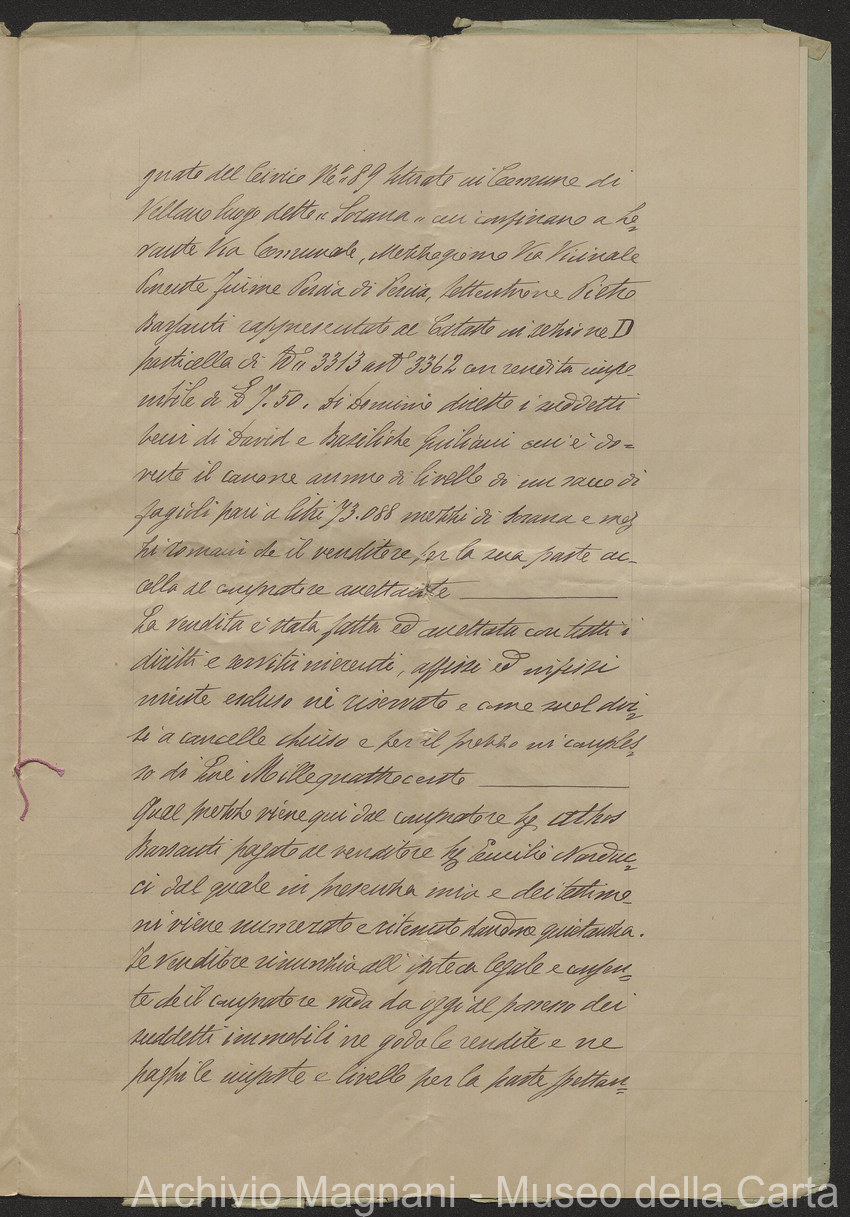 gnato del Civico N.° 89 situato in Comune di
Vellano luogo detto "Sorana" cui confinano a Le=
vante Via Comunale, Mezzogiorno Via Vicinale
Ponente fiume Pescia di Pescia, Settentrione Pietro
Barsanti rappresentato al Catasto in sezione D
particella di N.° 3313 art° 3362 con rendita impo-
nibile di £ 7.50. Di dominio diretto i suddetti
beni di David e Basiliche Giuliani cui è do=
vuto il canone annuo di livello di un sacco di
fagioli pari a litri 73.088 mezzi di Sorana e mez=
zi romani che il venditore per la sua parte ac-
colla al compratore accettante
La vendita è stata fatta ed accettata con tutti i
diritti e servitù inerenti, affissi ed infissi
niente escluso nè riservato e come suol dir=
si a cancello chiuso e per il prezzo in comples=
so di Lire Millequattrocento
Qual prezzo viene qui dal compratore Sig. Athos
Barsanti pagato al venditore Sig. Emilio Narduc=
ci dal quale in presenza mia e dei testimo-
ni viene numerato e ritenuto dandone quietanza.
Il venditore rinunzia all'ipoteca legale e consen=
te che il compratore vada da oggi al possesso dei
suddetti immobili ne goda le rendite e ne
paghi le imposte e livello per la parte spettan=
Archivio Magnani - Museo della Carta